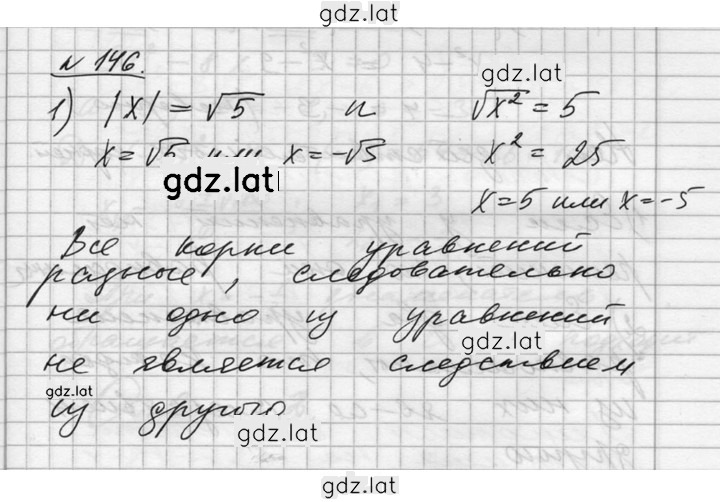 gdz.lat
N 146.
gdz.lat
1) |x| = √5 и √x² = 5
x = √5 или x = -√5 x² = 25
gdz.lat
x = 5 или x = -5
Все корни уравнений
разные, следовательно
ни одно из уравнений
gdz.lat
не является следствием
gdz.lat
из другого
gdz.lat
gdz.lat